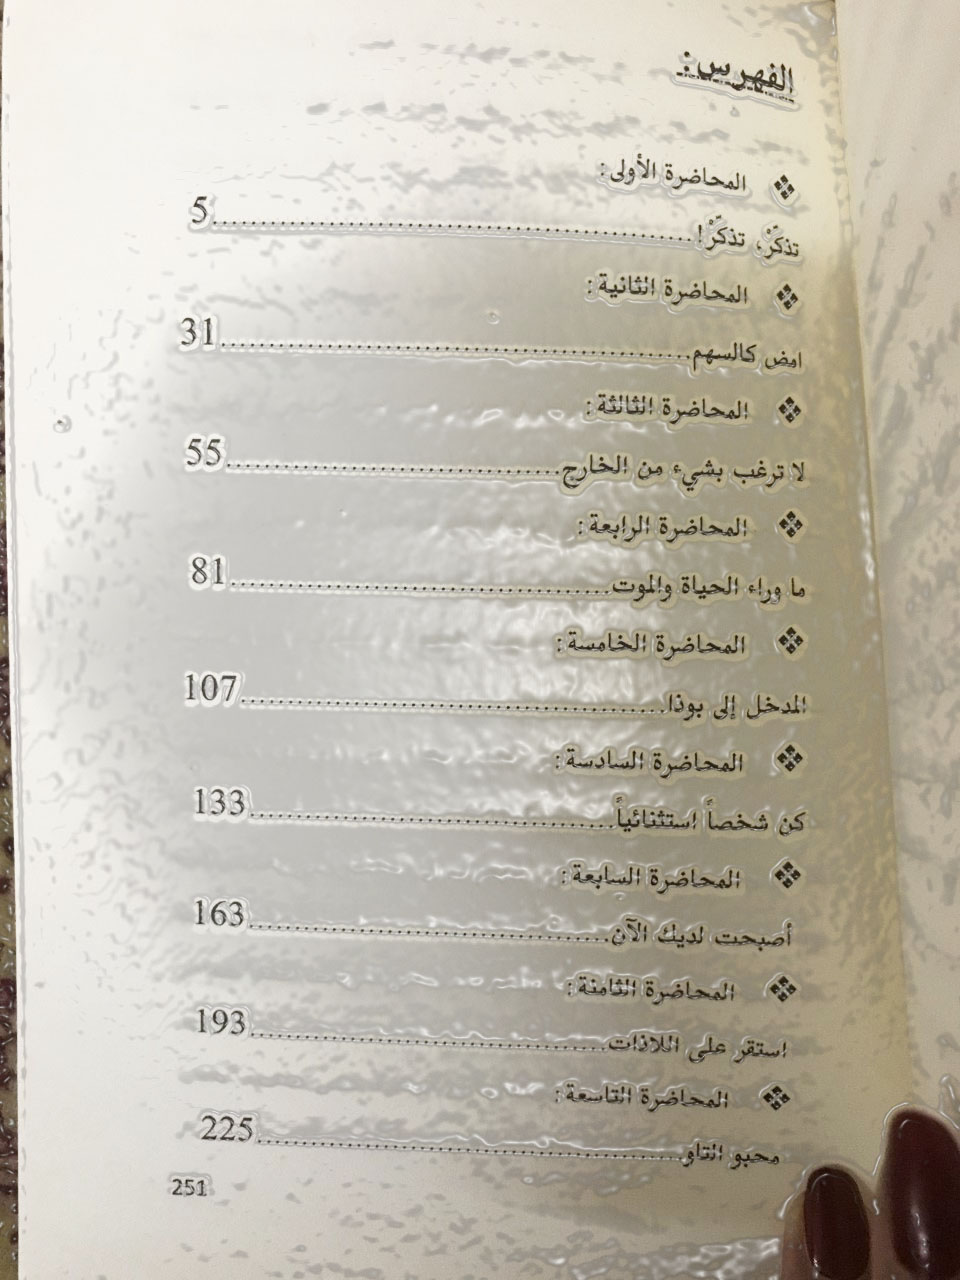 الفهرس:
❖ المحاضرة الأولى:
تذكرّْ، تذكّرْ!..........5
❖ المحاضرة الثانية:
امض كالسهم..........31
❖ المحاضرة الثالثة:
لا ترغب بشيء من الخارج..........55
❖ المحاضرة الرابعة:
ما وراء الحياة والموت..........81
❖ المحاضرة الخامسة:
المدخل إلى بوذا..........107
❖ المحاضرة السادسة:
كن شخصاً استثنائياً..........133
❖ المحاضرة السابعة:
أصبحت لديك الآن..........163
❖ المحاضرة الثامنة:
استقر على اللاذات..........193
❖ المحاضرة التاسعة:
محبو التاو..........225
251